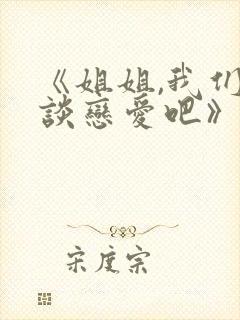 《姐姐,我们
談戀愛吧》
宋度宗